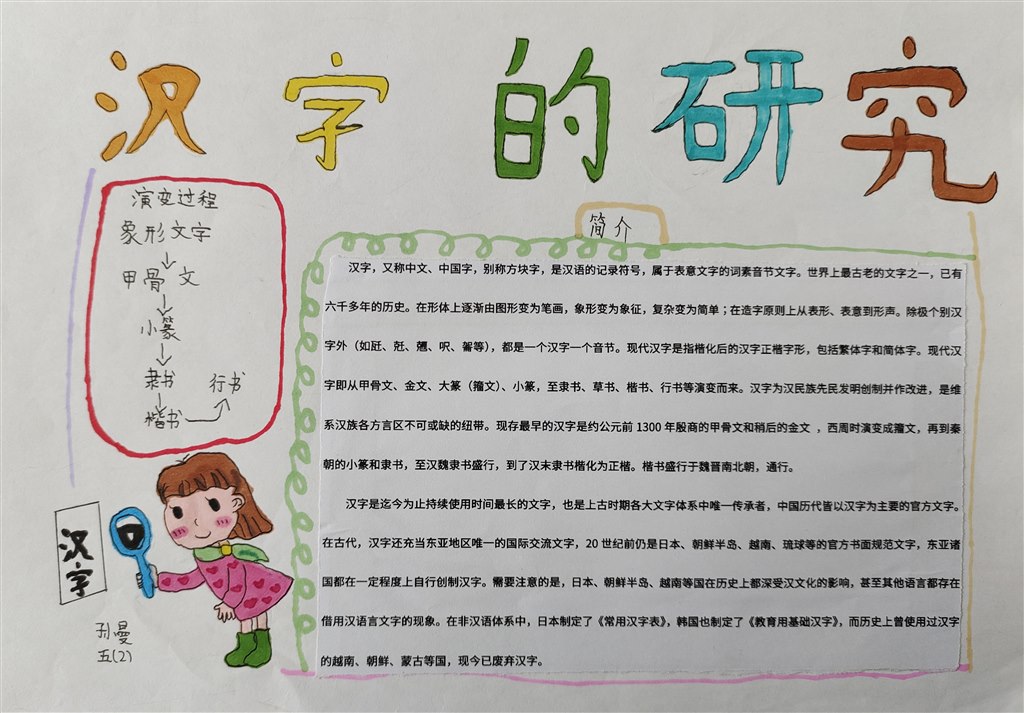 汉字的研究
演变过程
象形文字
↓
甲骨文
↓
小篆
↓
隶书
↓
楷书 → 行书
简介
汉字，又称中文、中国字，别称方块字，是汉语的记录符号，属于表意文字的词素音节文字。世界上最古老的文字之一，已有
六千多年的历史。在形体上逐渐由图形变为笔画，象形变为象征，复杂变为简单；在造字原则上从表形、表意到形声。除极个别汉
字外（如瓩、兛、兣、呎、嗧等），都是一个汉字一个音节。现代汉字是指楷化后的汉字正楷字形，包括繁体字和简体字。现代汉
字即从甲骨文、金文、大篆（籀文）、小篆，至隶书、草书、楷书、行书等演变而来。汉字为汉民族先民发明创制并作改进，是维
系汉族各方言区不可或缺的纽带。现存最早的汉字是约公元前 1300 年殷商的甲骨文和稍后的金文 ，西周时演变成籀文，再到秦
朝的小篆和隶书，至汉魏隶书盛行，到了汉末隶书楷化为正楷。楷书盛行于魏晋南北朝，通行。
汉字是迄今为止持续使用时间最长的文字，也是上古时期各大文字体系中唯一传承者，中国历代皆以汉字为主要的官方文字。
在古代，汉字还充当东亚地区唯一的国际交流文字，20 世纪前仍是日本、朝鲜半岛、越南、琉球等的官方书面规范文字，东亚诸
国都在一定程度上自行创制汉字。需要注意的是，日本、朝鲜半岛、越南等国在历史上都深受汉文化的影响，甚至其他语言都存在
借用汉语言文字的现象。在非汉语体系中，日本制定了《常用汉字表》，韩国也制定了《教育用基础汉字》，而历史上曾使用过汉字
的越南、朝鲜、蒙古等国，现今已废弃汉字。
汉字
孙曼
五(2)